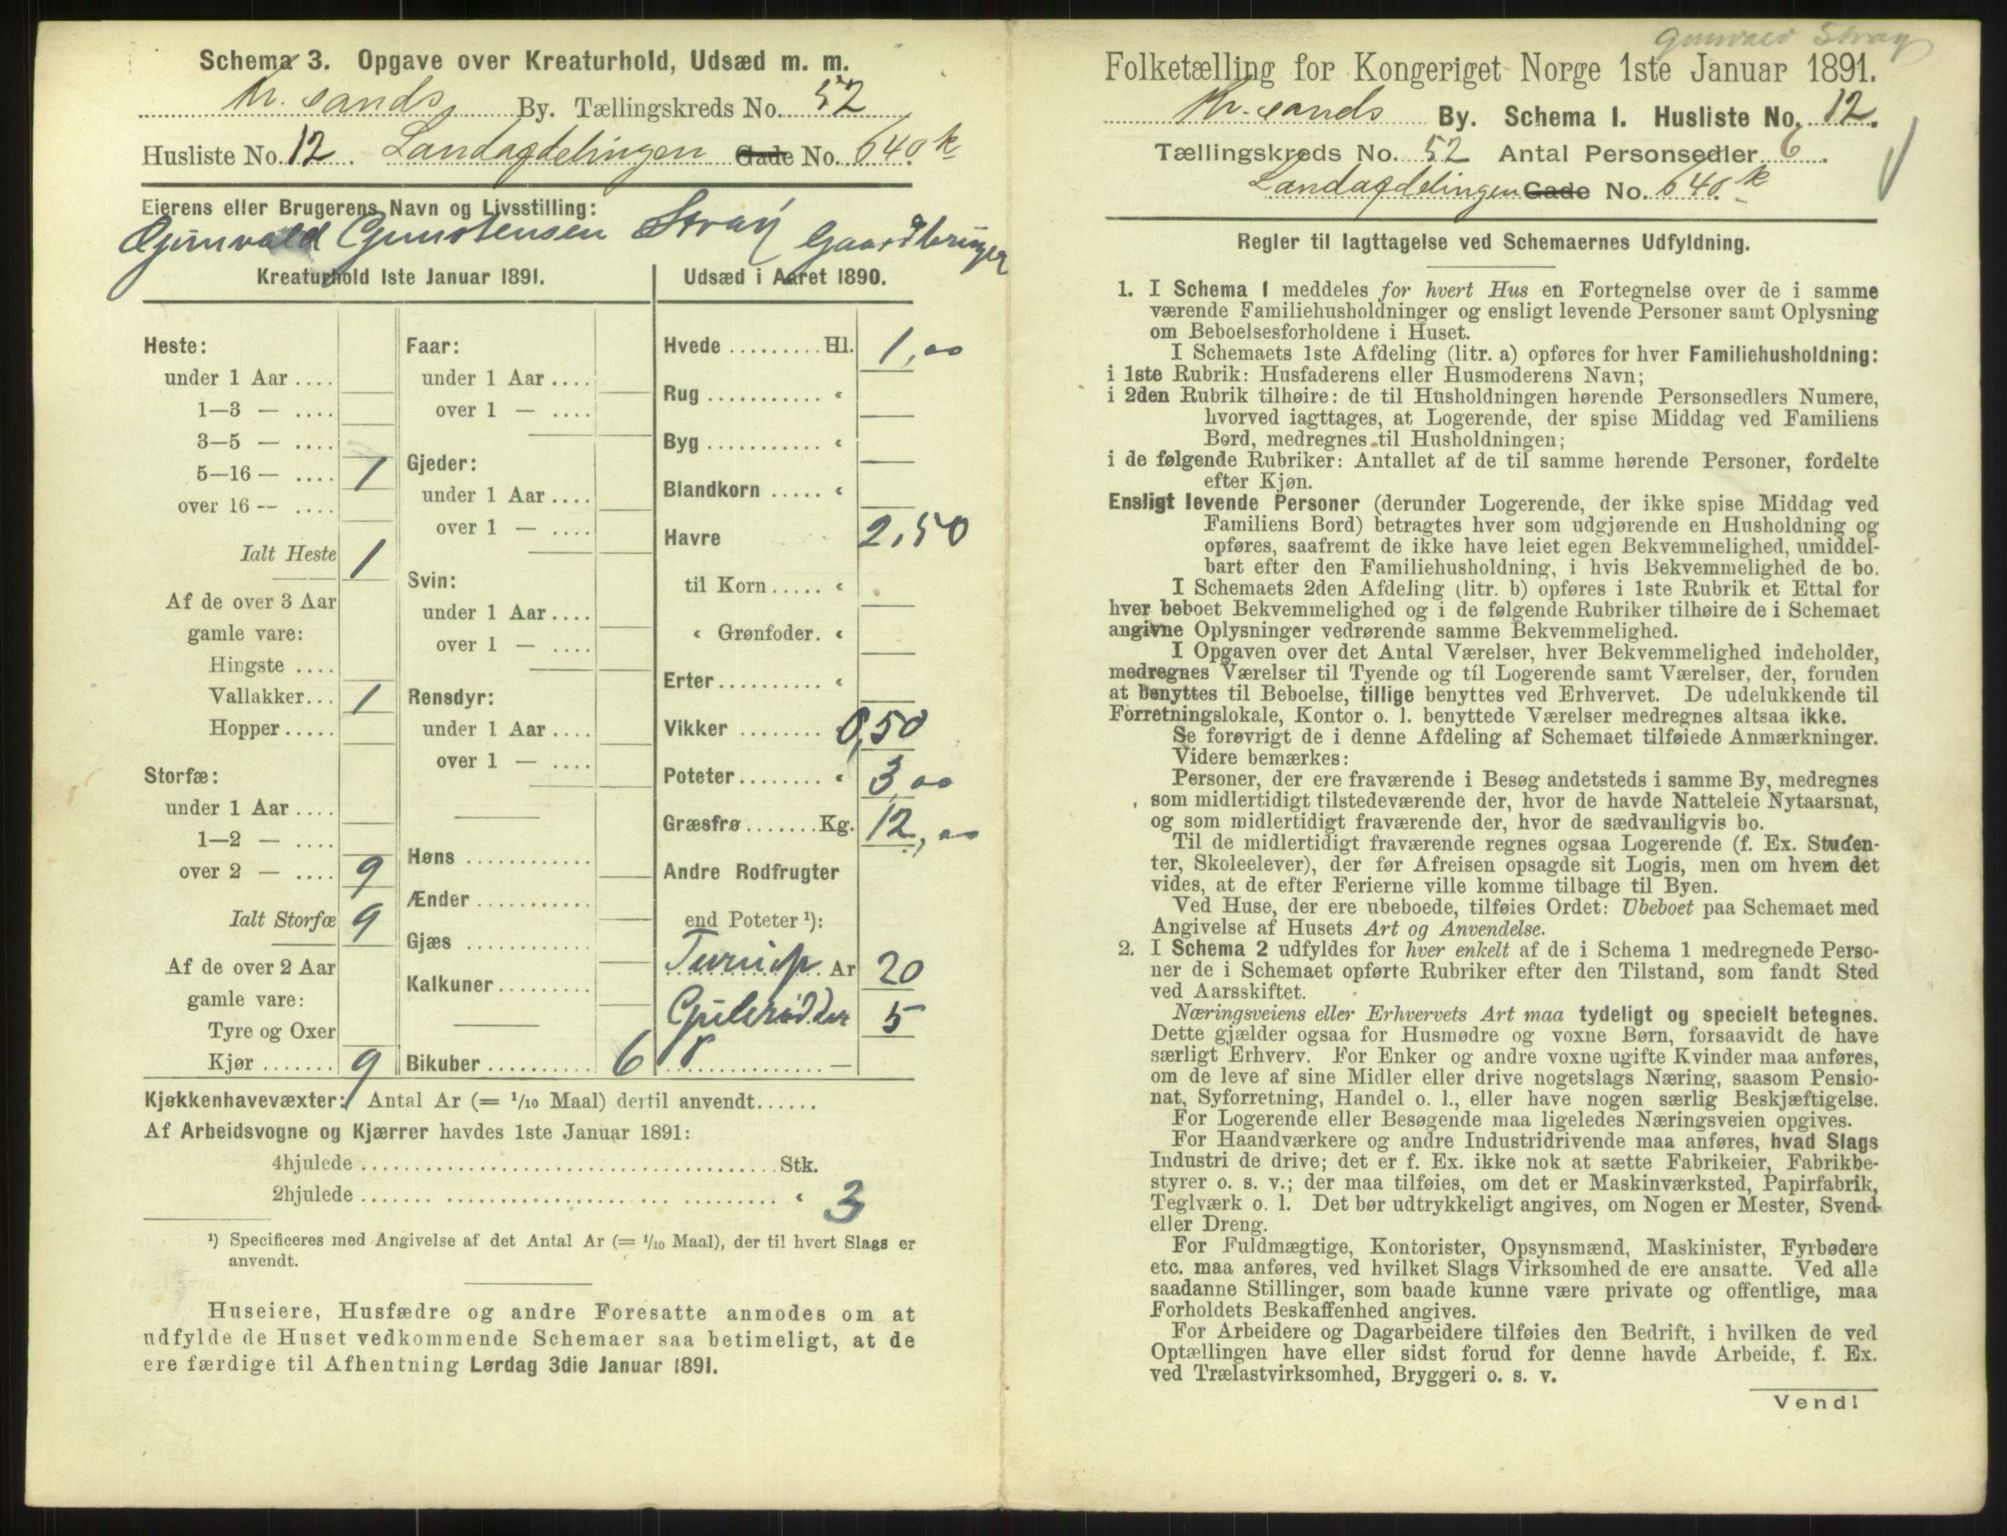 Schema 3. Opgave over Kreaturhold, Udsæd m. m.
Kr.sands By. Tællingskreds No. 52
Husliste No. 12. Landafdelingen Gade No. 640 k
Eierens eller Brugerens Navn og Livsstilling:
Gunvald Gunstensen Stray Gaardbruger
Kreaturhold 1ste Januar 1891.
Heste:
under 1 Aar ....
1—3 — ....
3—5 — ....
5—16 — .... 1
over 16 — ....
Ialt Heste 1
Af de over 3 Aar
gamle vare:
Hingste ....
Vallakker... 1
Hopper .....
Storfæ:
under 1 Aar ....
1—2 — ....
over 2 — .... 9
Ialt Storfæ 9
Af de over 2 Aar
gamle vare:
Tyre og Oxer
Kjør ....... 9
Faar:
under 1 Aar ....
over 1 — ....
Gjeder:
under 1 Aar ....
over 1 — ....
Svin:
under 1 Aar ....
over 1 — ....
Rensdyr:
under 1 Aar ....
over 1 — ....
Høns ...........
Ænder ...........
Gjæs ...........
Kalkuner .........
Bikuber .......... 6
Udsæd i Aaret 1890.
Hvede ......... Hl. 1,00
Rug ........... "
Byg ........... "
Blandkorn ..... "
Havre 2,50
til Korn ..... "
" Grønfoder. "
Erter .......... "
Vikker ........ 0,50
Poteter ........ " 3,00
Græsfrø ....... Kg. 12,00
Andre Rodfrugter
end Poteter ¹):
Turnip Ar 20
Gulerødder 5
Kjøkkenhavevæxter: Antal Ar (= 1/10 Maal) dertil anvendt ......
Af Arbeidsvogne og Kjærrer havdes 1ste Januar 1891:
4hjulede .................................... Stk.
2hjulede .................................... " 3
¹) Specificeres med Angivelse af det Antal Ar (= 1/10 Maal), der til hvert Slags er
anvendt.
Huseiere, Husfædre og andre Foresatte anmodes om at
udfylde de Huset vedkommende Schemaer saa betimeligt, at de
ere færdige til Afhentning Lørdag 3die Januar 1891.
Gunvald Stray
Folketælling for Kongeriget Norge 1ste Januar 1891.
Kr.sands By. Schema 1. Husliste No. 12.
Tællingskreds No. 52 Antal Personsedler 6.
Landafdelingen Gade No. 640. k
Regler til Iagttagelse ved Schemaernes Udfyldning.
1. I Schema 1 meddeles for hvert Hus en Fortegnelse over de i samme
værende Familiehusholdninger og ensligt levende Personer samt Oplysning
om Beboelsesforholdene i Huset.
I Schemaets 1ste Afdeling (litr. a) opføres for hver Familiehusholdning:
i 1ste Rubrik: Husfaderens eller Husmoderens Navn;
i 2den Rubrik tilhøire: de til Husholdningen hørende Personsedlers Numere,
hvorved iagttages, at Logerende, der spise Middag ved Familiens
Bord, medregnes til Husholdningen;
i de følgende Rubriker: Antallet af de til samme hørende Personer, fordelte
efter Kjøn.
Ensligt levende Personer (derunder Logerende, der ikke spise Middag ved
Familiens Bord) betragtes hver som udgjørende en Husholdning og
opføres, saafremt de ikke have leiet egen Bekvemmelighed, umiddel-
bart efter den Familiehusholdning, i hvis Bekvemmelighed de bo.
I Schemaets 2den Afdeling (litr. b) opføres i 1ste Rubrik et Ettal for
hver beboet Bekvemmelighed og i de følgende Rubriker tilhøire de i Schemaet
angivne Oplysninger vedrørende samme Bekvemmelighed.
I Opgaven over det Antal Værelser, hver Bekvemmelighed indeholder,
medregnes Værelser til Tyende og til Logerende samt Værelser, der, foruden
at benyttes til Beboelse, tillige benyttes ved Erhvervet. De udelukkende til
Forretningslokale, Kontor o. l. benyttede Værelser medregnes altsaa ikke.
Se forøvrigt de i denne Afdeling af Schemaet tilføiede Anmærkninger.
Videre bemærkes:
Personer, der ere fraværende i Besøg andetsteds i samme By, medregnes
som midlertidigt tilstedeværende der, hvor de havde Natteleie Nytaarsnat,
og som midlertidigt fraværende der, hvor de sædvanligvis bo.
Til de midlertidigt fraværende regnes ogsaa Logerende (f. Ex. Studen-
ter, Skoleelever), der før Afreisen opsagde sit Logis, men om hvem det
vides, at de efter Ferierne ville komme tilbage til Byen.
Ved Huse, der ere ubeboede, tilføies Ordet: Ubeboet paa Schemaet med
Angivelse af Husets Art og Anvendelse.
2. I Schema 2 udfyldes for hver enkelt af de i Schema 1 medregnede Perso-
ner de i Schemaet opførte Rubriker efter den Tilstand, som fandt Sted
ved Aarsskiftet.
Næringsveiens eller Erhvervets Art maa tydeligt og specielt betegnes.
Dette gjælder ogsaa for Husmødre og voxne Børn, forsaavidt de have
særligt Erhverv. For Enker og andre voxne ugifte Kvinder maa anføres,
om de leve af sine Midler eller drive nogetslags Næring, saasom Pensio-
nat, Syforretning, Handel o. l., eller have nogen særlig Beskjæftigelse.
For Logerende eller Besøgende maa ligeledes Næringsveien opgives.
For Haandværkere og andre Industridrivende maa anføres, hvad Slags
Industri de drive; det er f. Ex. ikke nok at sætte Fabrikeier, Fabrikbe-
styrer o. s. v.; der maa tilføies, om det er Maskinværksted, Papirfabrik,
Teglværk o. l. Det bør udtrykkeligt angives, om Nogen er Mester, Svend
eller Dreng.
For Fuldmægtige, Kontorister, Opsynsmænd, Maskinister, Fyrbødere
etc. maa anføres, ved hvilket Slags Virksomhed de ere ansatte. Ved alle
saadanne Stillinger, som baade kunne være private og offentlige, maa
Forholdets Beskaffenhed angives.
For Arbeidere og Dagarbeidere tilføies den Bedrift, i hvilken de ved
Optællingen have eller sidst forud for denne havde Arbeide, f. Ex.
ved Trælastvirksomhed, Bryggeri o. s. v.
Vend!